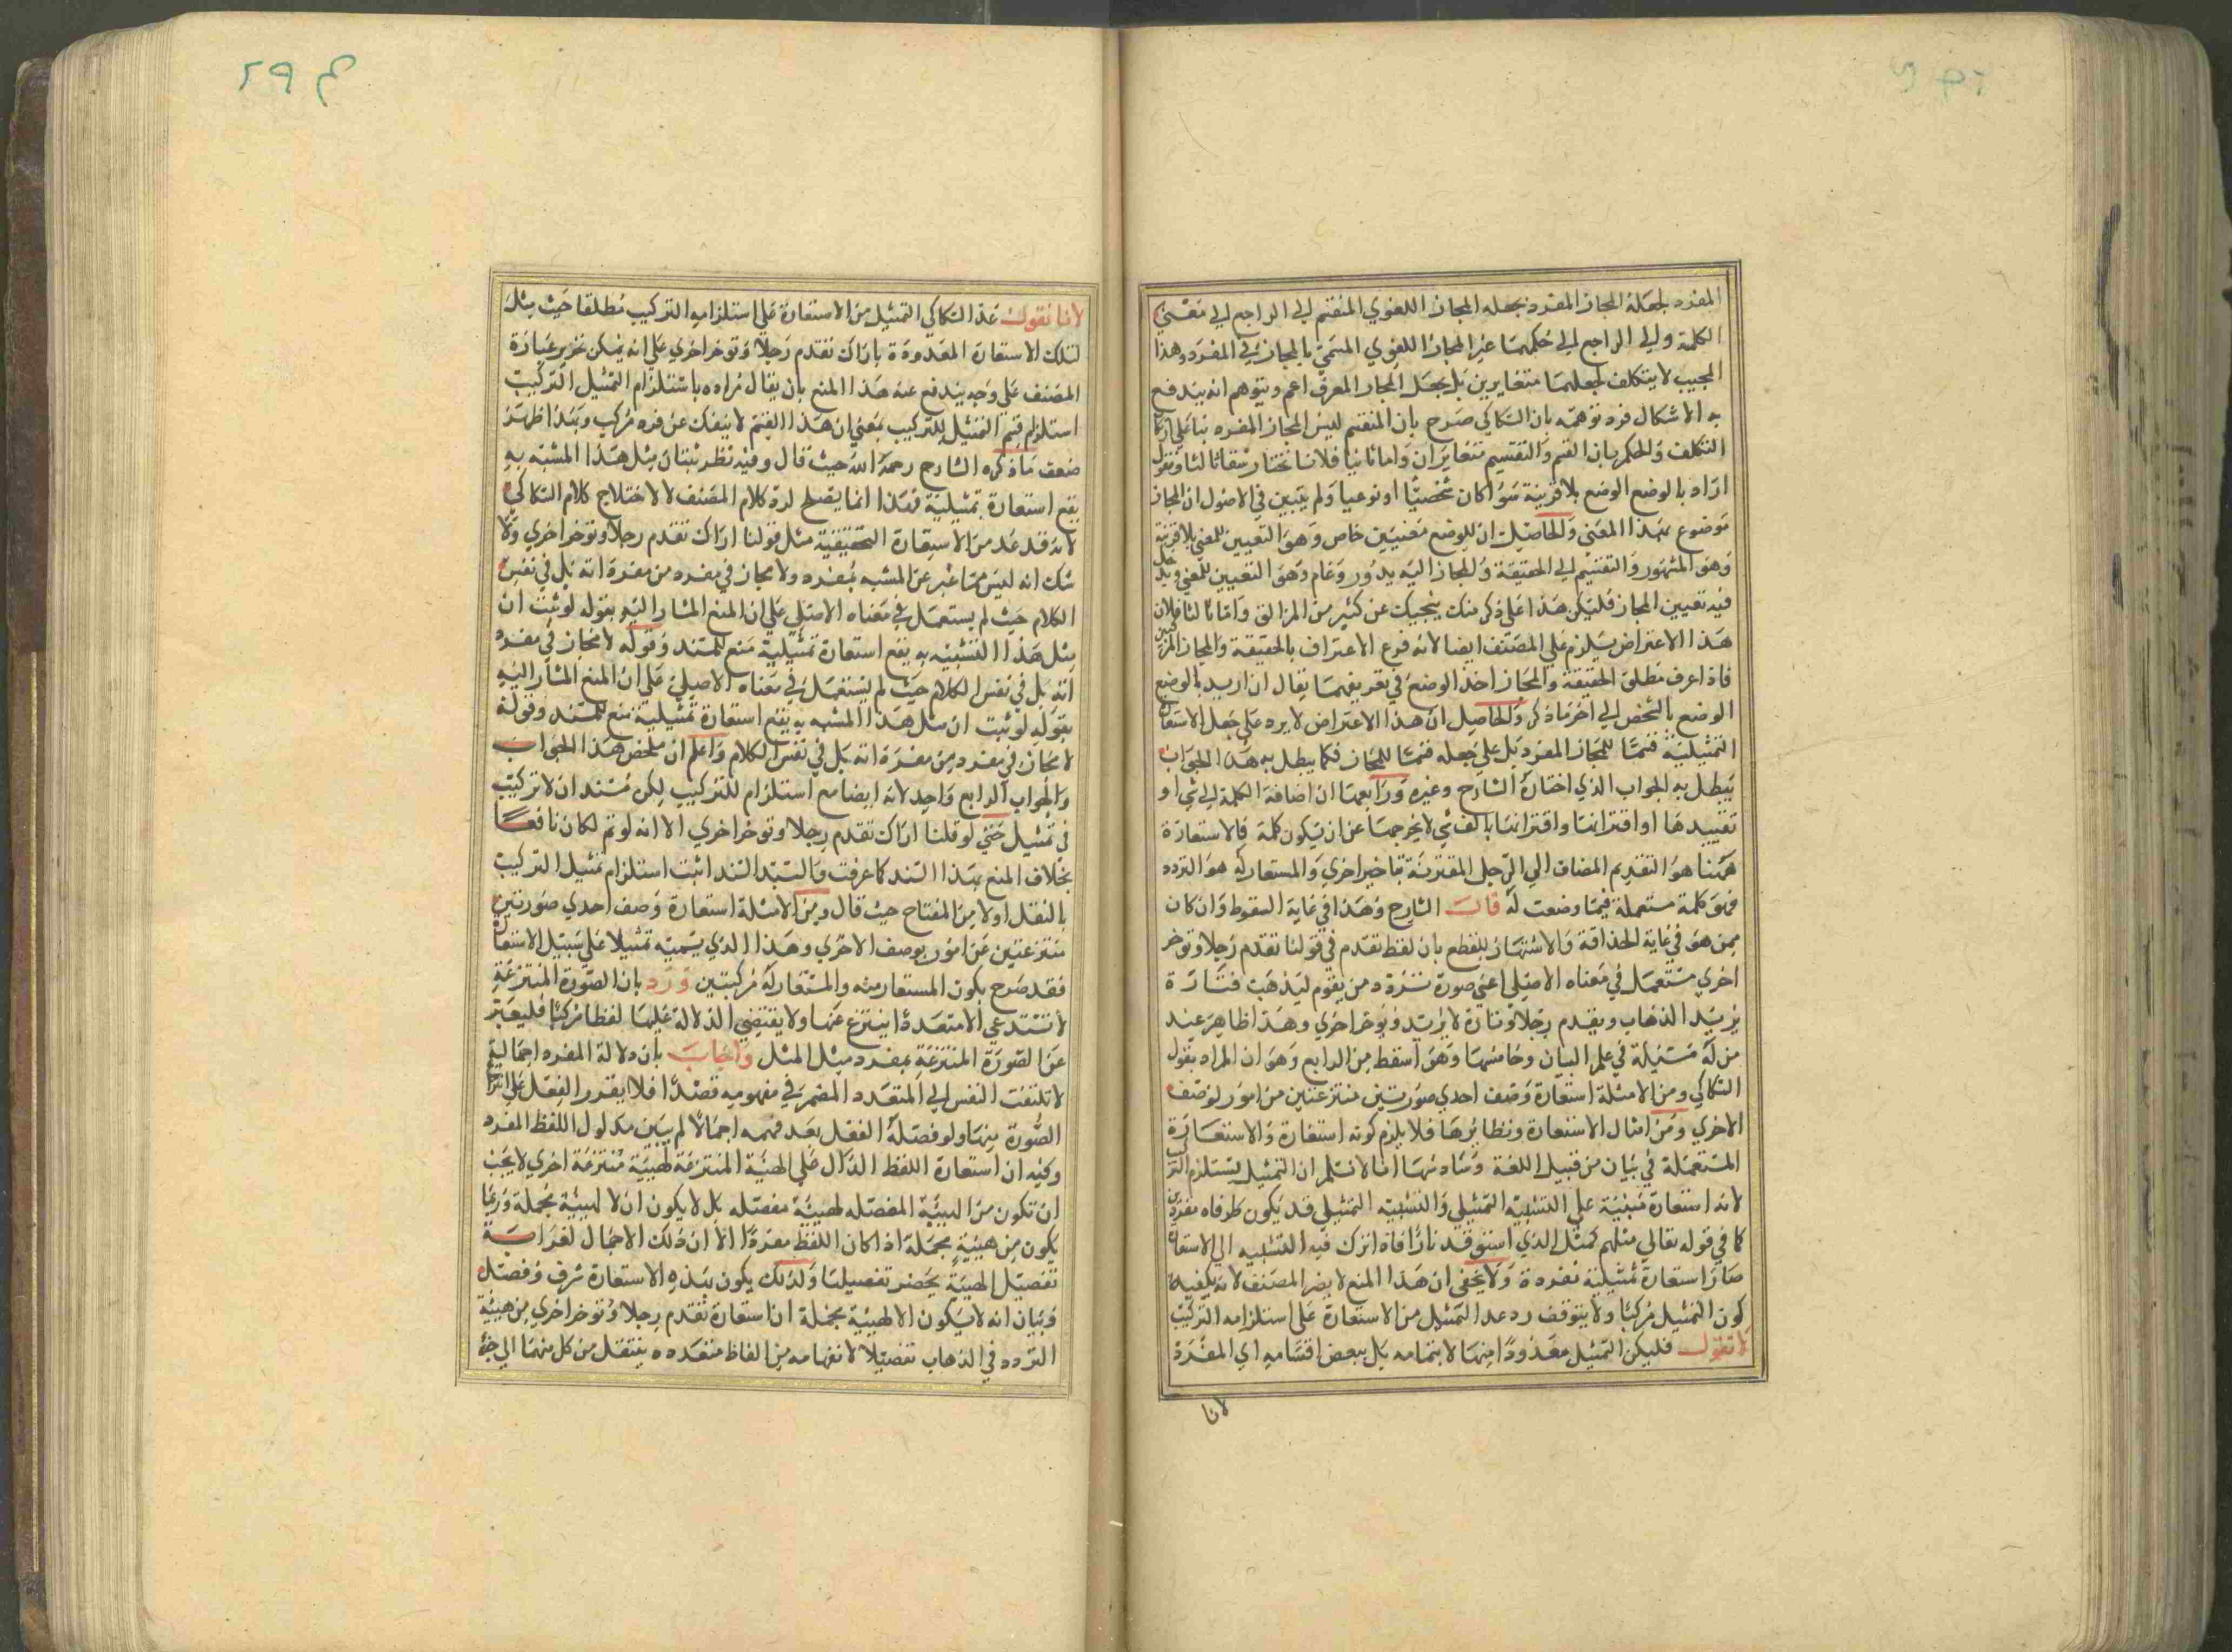 المفرد لجعله المجاز المفرد بجعله المجاز اللغوي المنقسم الى الراجع الى معنى
الكلمة والى الراجع الى حكمها غير المجاز اللغوي المسمى بالمجاز في المفرد وهذا
المجيب لا يتكلف لجعلهما متغايرين بل يجعل المجاز المعرف اعم ويتوهم انه يندفع
به الاشكال فرد توهمه بان السكاكي صرح بان المنقسم ليس المجاز المفرد بنا على
التكلف والحكم بان القسم والتقسيم متغايران واما ثانيا فلانا نختار شقا ثالثا ونقول
اراد بالوضع الوضع بلا قرينة سوا كان شخصيا او نوعيا ولم يتبين في الاصول ان المجاز
موضوع بهذا المعنى والحاصل ان للوضع معنيين خاص وهو التعيين للمعنى بلا قرينة
وهو المشهور والتقسيم الى الحقيقة والمجاز اليه يدور وعام وهو التعيين للمعنى ويدخل
فيه تعيين المجاز فليكن هذا على ذكر منك ينجيك عن كثير من المزالق واما ثالثا فلان
هذا الاعتراض يلزم على المصنف ايضا لانه فرع الاعتراف بالحقيقة والمجاز المركبين
فاذا عرف مطلق الحقيقة والمجاز اخذ الوضع في تعريفهما يقال ان اريد بالوضع
الوضع بالشخص الى اخر ما ذكر والحاصل ان هذا الاعتراض لا يرد على جعل الاستعارة
التمثيلية قسما للمجاز المفرد بل على جعله قسما للمجاز فكما يبطل به هذا الجواب
يبطل به الجواب الذي اختاره الشارح وغيره ورابعها ان اضافة الكلمة الى شي او
تقييدها او اقترانها واقترانها بالف شي لا يخرجها عن ان يكون كلمة فالاستعارة
ههنا هو التقديم المضاف الى الرجل المقترنة بتاخير اخرى والمستعار له هو التردد
فهو كلمة مستعملة فيما وضعت له قال الشارح وهذا في غاية السقوط وان كان
ممن هو في غاية الحذاقة والاشتهار للقطع بان لفظ تقدم في قولنا تقدم رجلا وتوخر
اخرى مستعمل في معناه الاصلي اعني صورة تردد من يقوم ليذهب فتارة
يريد الذهاب ويقدم رجلا وتارة لا يريد ويوخر اخرى وهذا ظاهر عند
من له مسكة في علم البيان وخامسها وهو اسقط من الرابع وهو ان المراد بقول
السكاكي ومن الامثلة استعارة وصف احدى صورتين منتزعتين من امور لوصف
الاخرى ومن امثال الاستعارة ونظايرها فلا يلزم كونه استعارة والاستعارة
المستعملة في بيان من قبيل اللغة وسادسها انا لا نسلم ان التمثيل يستلزم التركيب
لانه استعارة مبنية على التشبيه التمثيلي والتشبيه التمثيلي قد يكون طرفاه مفردين
كما في قوله تعالى مثلهم كمثل الذي استوقد نارا فاذا ترك فيه التشبيه الى الاستعارة
صار استعارة تمثيلية مفردة ولا يخفى ان هذا المنع لا يضر المصنف لانه يكفيه
كون التمثيل مركبا ولا يتوقف رد عد التمثيل من الاستعارة على استلزامه التركيب
لا تقول فليكن التمثيل معدودا منها لا بتمامه بل ببعض اقسامه اي المفردة
لانا
لانا نقول عد السكاكي التمثيل من الاستعارة على استلزامه التركيب مطلقا حيث مثل
لتلك الاستعارة المعدودة باراك تقدم رجلا وتوخر اخرى على انه يمكن تحرير عبارة
المصنف على وجه يندفع عنه هذا المنع بان يقال مراده باستلزام التمثيل التركيب
استلزام قسم التمثيل للتركيب بمعنى ان هذا القسم لا ينفك عن فرد مركب وبهذا ظهر
ضعف ما ذكره الشارح رحمه الله حيث قال وفيه نظر ثبتان مثل هذا المشبه به
يقع استعارة تمثيلية فهذا انما يصلح لرد كلام المصنف لا لاختلاج كلام السكاكي
لانه قد عد من الاستعارة التحقيقية مثل قولنا اراك تقدم رجلا وتوخر اخرى ولا
شك انه ليس مما عبر عن المشبه بمفرد ولا مجاز في مفرد من مفرداته بل في نفس
الكلام حيث لم يستعمل في معناه الاصلي على ان المنع المشار اليه بقوله لو ثبت ان
مثل هذا التشبيه به يقع استعارة تمثيلية منع للسند وقوله لا مجاز في مفرد
اته بل في نفس الكلام حيث لم يستعمل في معناه الاصلي على ان المنع المشار اليه
بقوله لو ثبت ان مثل هذا المشبه به يقع استعارة تمثيلية منع للسند وقوله
لا مجاز في مفرد من مفرداته بل في نفس الكلام واعلم ان ملخص هذا الجواب
والجواب الرابع واحد لانه ايضا مع استلزام للتركيب لكن مستند ان لا تركيب
في تمثيل حتى لو قلنا اراك تقدم رجلا وتوخر اخرى الا انه لو تم لكان نافعا
بخلاف المنع بهذا السند كما عرفت والسيد السند اثبت استلزام تمثيل التركيب
بالنقل اولا من المفتاح حيث قال ومن الامثلة استعارة وصف احدى صورتين
منتزعتين عن امور بوصف الاخرى وهذا الذي يسميه تمثيلا على سبيل الاستعارة
فقد صرح بكون المستعار منه والمستعار له مركبتين ورد بان الصورة المنتزعة
لا تستدعي الا متعددا ينتزع عنها ولا يقتضي الدلالة عليها لفظا مركبا فليعبر
عن الصورة المنتزعة بمفرد مثل المثل واجاب بان دلالة المفرد اجمالية
لا تلتفت النفس الى المتعدد المضمر في مفهومه قصدا فلا يقدر العقل على انتزاع
الصورة منها ولو فصله العقل بعد فهمه اجمالا لم يبين مدلول اللفظ المفرد
وفيه ان استعارة اللفظ الدال على الهيئة المنتزعة لهيئة منتزعة اخرى لا يجب
ان تكون من الهيئة المفصله لهيئة مفصله بل لا يكون ان لا لهيئة مجملة وربما
يكون من هيئة مجملة اذا كان اللفظ مفردا الا ان ذلك الاجمال لغرابة
تفصيل الهيئة يحضر تفصيلها ولذلك يكون بهذه الاستعارة شرف وفضل
وبيان انه لا يكون الا لهيئة مجملة ان استعارة تقدم رجلا وتوخر اخرى من هيئة
التردد في الذهاب تفصيلا لانفهامه من الفاظ متعدده ينتقل من كل منها الى جزء